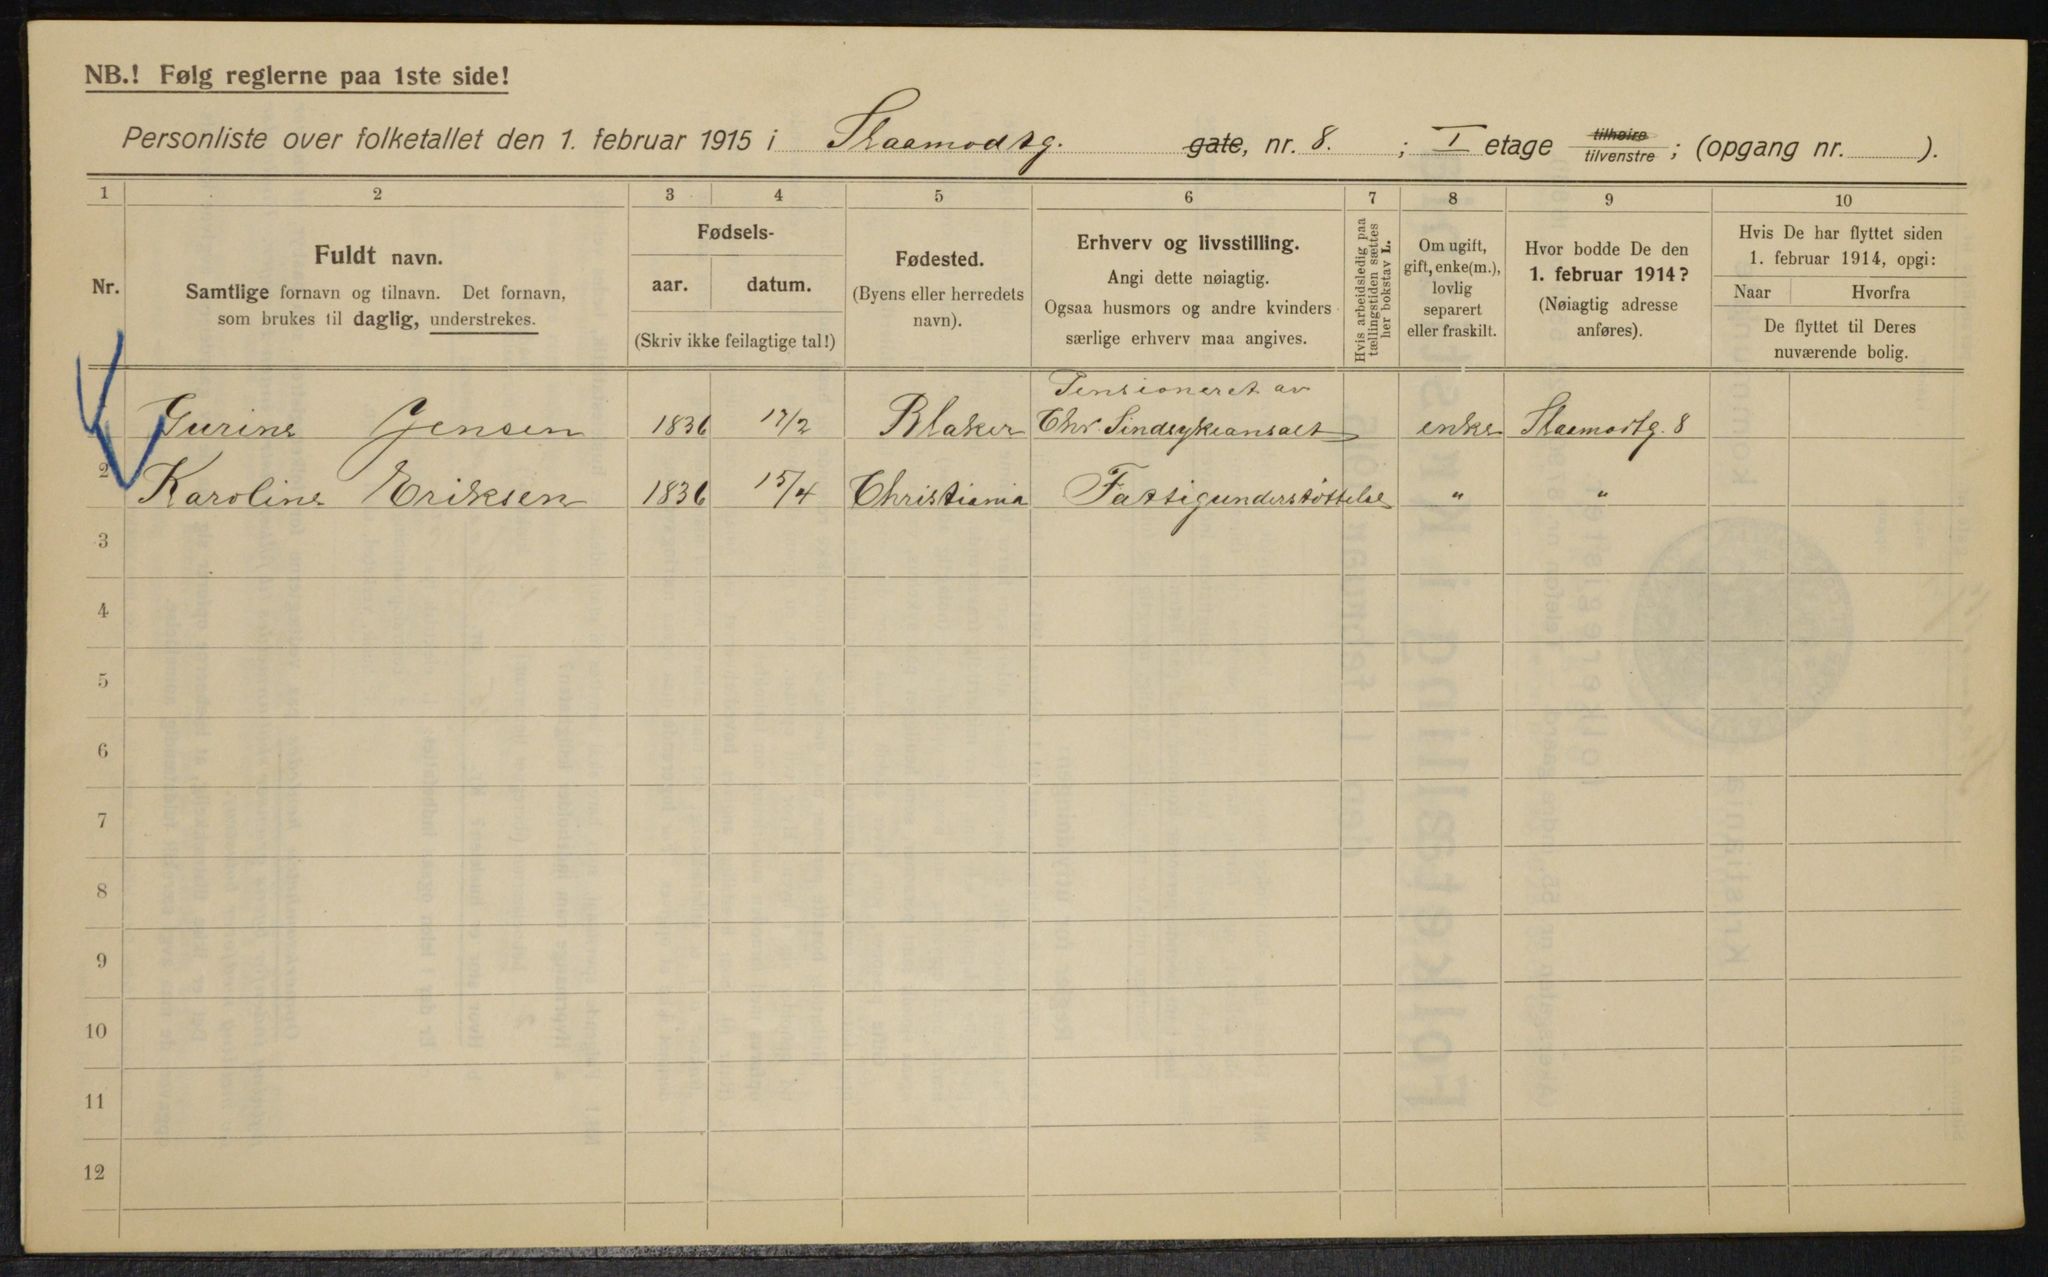 NB.! Følg reglerne paa 1ste side!
Personliste over folketallet den 1. februar 1915 i Staamodtg. gate, nr. 8. ; I etage tilhøire tilvenstre ; (opgang nr. ).
1 2 3 4 5 6 7 8 9 10
Nr.
Fuldt navn.
Samtlige fornavn og tilnavn. Det fornavn,
som brukes til daglig, understrekes.
Fødsels-
aar. datum.
(Skriv ikke feilagtige tal!)
Fødested.
(Byens eller herredets
navn).
Erhverv og livsstilling.
Angi dette nøiagtig.
Ogsaa husmors og andre kvinders
særlige erhverv maa angives.
Hvis arbeidsledig paa
tællingstiden sættes
her bokstav L.
Om ugift,
gift, enke(m.),
lovlig
separert
eller fraskilt.
Hvor bodde De den
1. februar 1914?
(Nøiagtig adresse
anføres).
Hvis De har flyttet siden
1. februar 1914, opgi:
Naar Hvorfra
De flyttet til Deres
nuværende bolig.
Gurine Jensen 1836 17/2 Blaker Pensioneret av Chr. Sindsykeansalt enke Staamodtg. 8
2 Karoline Eriksen 1836 15/4 Christiania Fattigunderstøttelse " "
3
4
5
6
7
8
9
10
11
12